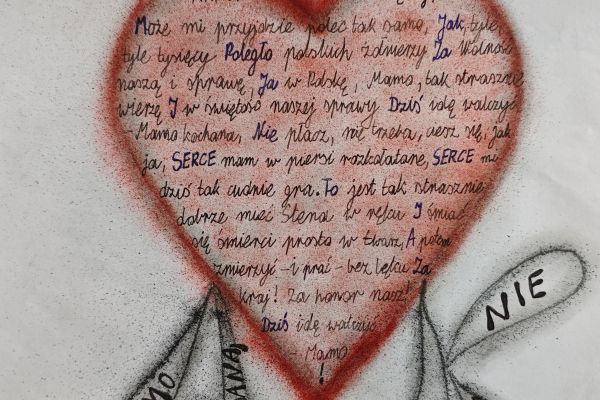 Może mi przyjdzie polec tak samo, Jak, tyle
tyle tysięcy Poległo polskich żołnierzy Za Wolność
naszą i sprawę, Ja w Polskę, Mamo, tak strasznie
wierzę I w świętość naszej sprawy Dziś idę walczyć
- Mamo kochana, Nie płacz, nie trzeba, ciesz się, jak
ja, SERCE mam w piersi rozkołatane, SERCE mi
dziś tak cudnie gra. To jest tak strasznie
dobrze mieć Stena w ręku I śmiać
się śmierci prosto w twarz, A potem
zmierzyć - i prać - bez lęku Za
kraj! Za honor nasz!
Dziś idę walczyć
- Mamo
!
NIE
MO
ANA